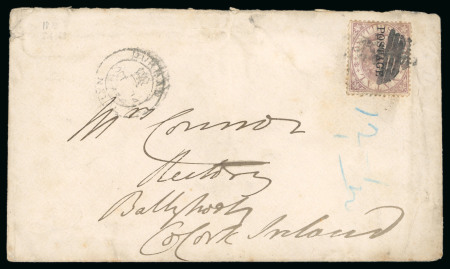 POSTAGE
DURBAN
Mrs Connor
Rectory
Ballyhooly
Co Cork Ireland